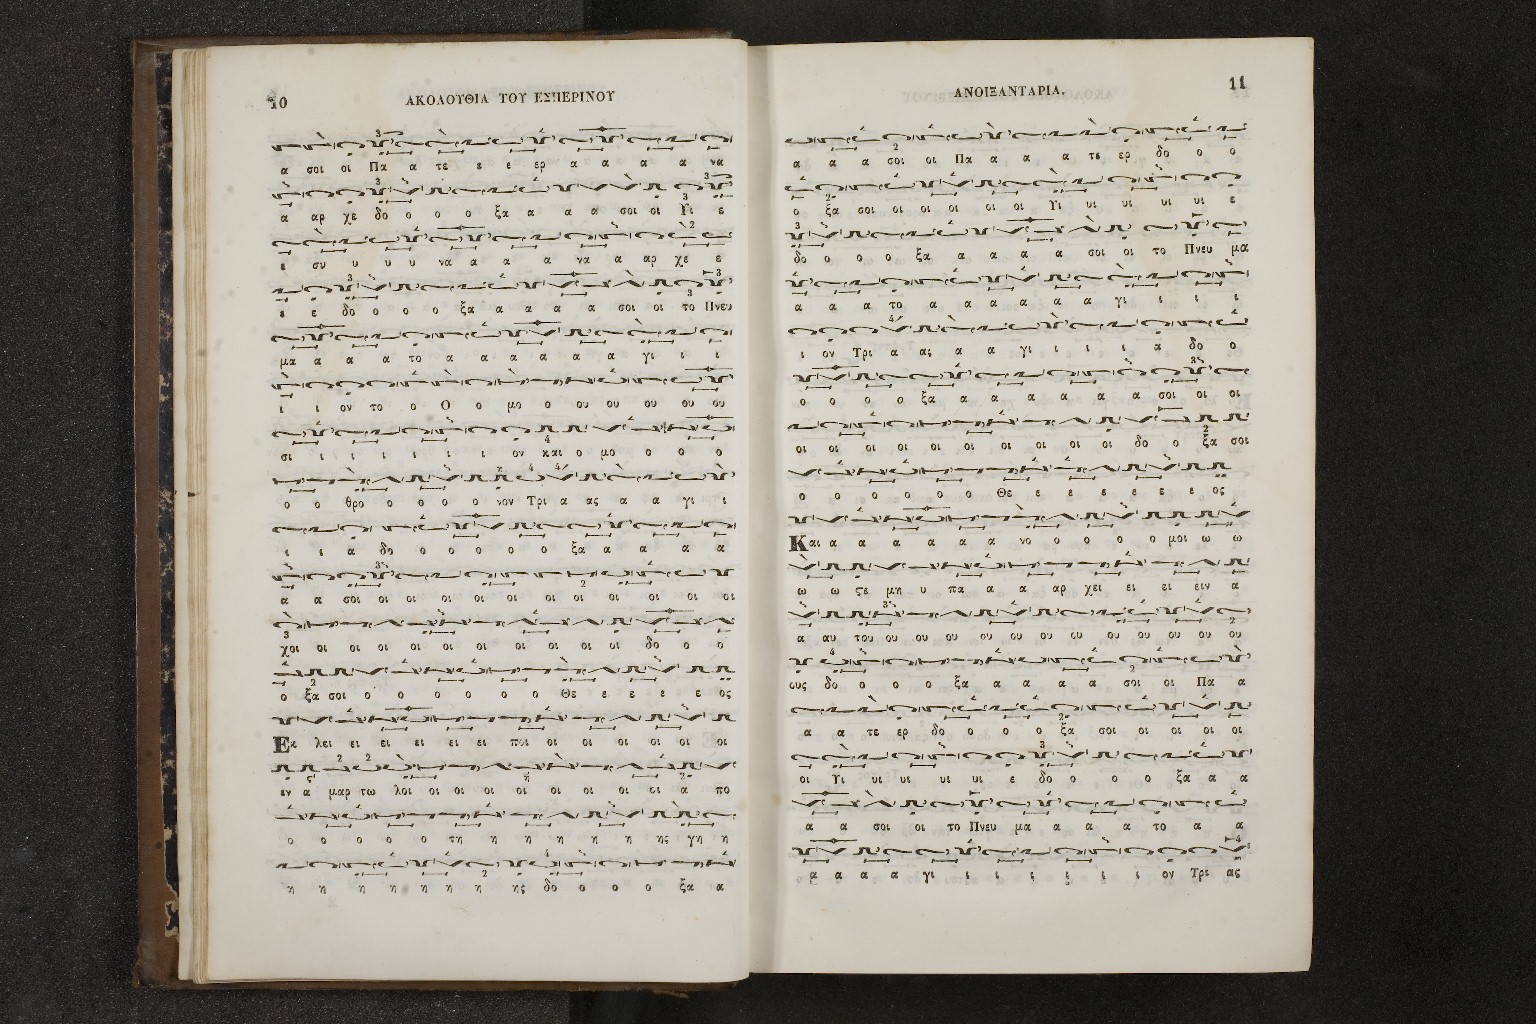 10
ΑΚΟΛΟΥΘΙΑ ΤΟΥ ΕΣΠΕΡΙΝΟΥ
α σοι οἱ Πα α τε ε ε ερ α α α α να
α αρ χε δο ο ο ο ξα α α α σοι οι Υι ε
ε συ υ υ υ να α α α να α αρ χε ε
ε ε δο ο ο ο ξα α α α α σοι οι το Πνευ
μα α α α το α α α α α α γι ι ι
ι ι ον το ο Ο ο μο ο ου ου ου ου ου
σι ι ι ι ι ι ι ον και ο μο ο ο ο
ο ο θρο ο ο ο ο νον Τρι α ας α α γι ι
ι ι α δο ο ο ο ο ο ξα α α α α
α α σοι οι οι οι οι οι οι οι οι οι οι οι
χοι οι οι οι οι οι οι οι οι οι οι δο ο ο
ο ξα σοι ο ο ο ο ο ο ο Θε ε ε ε ε ε ος
Εκ λει ει ει ει ει ει ποι οι οι οι οι οι οι οι
εν α μαρ τω λοι οι οι οι οι οι οι οι οι α πο
ο ο ο ο ο τη η η η η η η ης γη η
η η η η η η η ης δο ο ο ο ξα α
ΑΝΟΙΞΑΝΤΑΡΙΑ.
11
α α α σοι οι Πα α α α τε ερ δο ο ο
ο ξα σοι οι οι οι οι οι Υι υι υι υι υι ε
δο ο ο ο ξα α α α α σοι οι το Πνευ μα
α α α το α α α α α α γι ι ι ι
ι ον Τρι α ας α α γι ι ι ι α δο ο
ο ο ο ο ξα α α α α α α σοι οι οι
οι οι οι οι οι οι οι οι οι οι δο ο ξα σοι
ο ο ο ο ο ο Θε ε ε ε ε ε ε ος
Και α α α α α α νο ο ο ο ο μοι ω ω
ω ω ςε μη υ πα α α αρ χει ει ει ειν α
α αυ του ου ου ου ου ου ου ου ου ου ου ου ου
ους δο ο ο ο ξα α α α α σοι οι Πα α
α α τε ερ δο ο ο ο ξα σοι οι οι οι οι
οι Υι υι υι υι υι ε δο ο ο ο ξα α α
α α σοι οι το Πνευ μα α α α το α α
α α α α γι ι ι ι ι ι ι ον Τρι ας